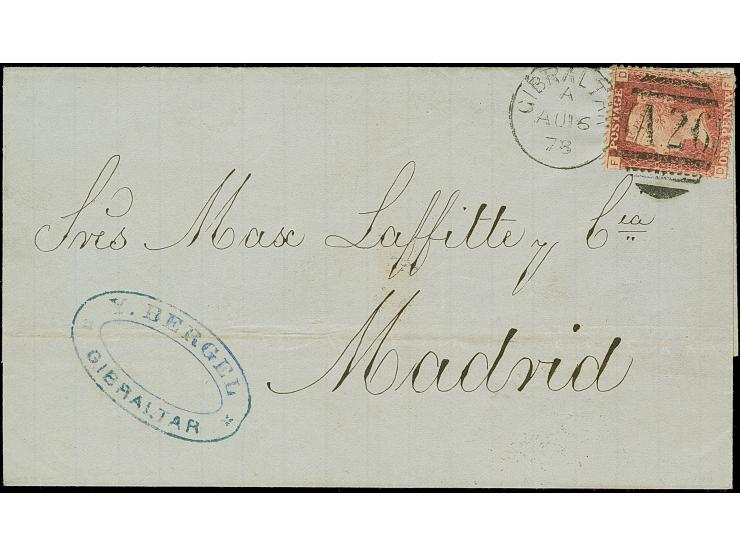 GIBRALTAR
A
AU16
78
D F
POSTAGE
A26
ONE PENNY
F D
Srēs Max Laffitte y Cia
Madrid
Y. BERGEL
GIBRALTAR